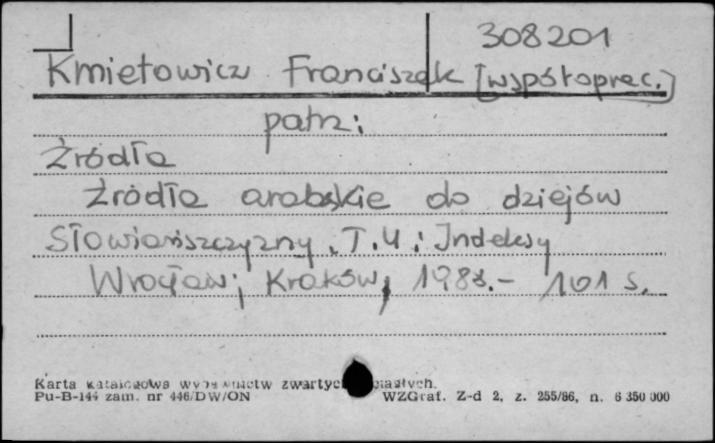 308201
Kmietowicz Franciszek [współoprac.]
patrz:
Źródła
Źródła arabskie do dziejów
Słowiańszczyzny. T.4: Indeksy
Wrocław; Kraków, 1988.- 101 s.
Karta katalogowa wydawnictw zwartych
Pu-B-144 zam. nr 446/DW/ON WZGraf. Z-d 2, z. 255/86, n. 6 350 000